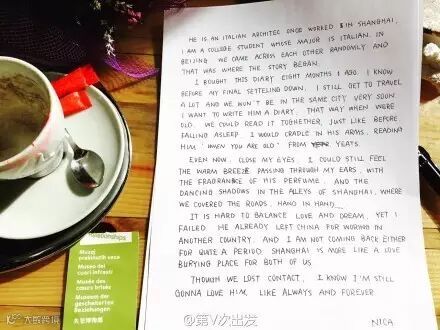 HE IS AN ITALIAN ARCHITEC ONCE WORKED IN SHANGHAI,
I AM A COLLEGE STUDENT WHOSE MAJOR IS ITALIAN. IN
BEIJING WE CAME ACROSS EACH OTHER RANDOMLY AND
THAT WAS WHERE THE STORY BEGAN.
I BOUGHT THIS DIARY EIGHT MONTHS AGO. I KNOW
BEFORE MY FINAL SETTELING DOWN, I STILL GET TO TRAVEL
A LOT AND WE WON'T BE IN THE SAME CITY VERY SOON
I WANT TO WRITE HIM A DIARY. THAT WAY WHEN WERE
OLD. WE COULD READ IT TOGHETHER, JUST LIKE BEFORE
FALLING ASLEEP. I WOULD CRADLE IN HIS ARMS. READING
HIM, 'WHEN YOU ARE OLD' FROM YEATS.
EVEN NOW. CLOSE MY EYES. I COULD STILL FEEL
THE WARM BREEZE PASSING THROUGH MY EARS. WITH
THE FRAGRANCE OF HIS PERFUME. AND THE
DANCING SHADOWS IN THE ALEYS OF SHANGHAI. WHERE
WE COVERED THE ROADS, HAND IN HAND.
IT IS HARD TO BALANCE LOVE AND DREAM, YET I
FAILED. HE ALREADY LEFT CHINA FOR WORING IN
ANOTHER COUNTRY. AND I AM NOT COMING BACK EITHER
FOR QUITE A PERIOD. SHANGHAI IS MORE LIKE A LOVE
BURYING PLACE FOR BOTH OF US.
THOUGH WE LOST CONTACT, I KNOW I'M STILL
GONNA LOVE HIM, LIKE ALWAYS AND FOREVER
NICA
Muzej
prekinutih veza
Museo dei
cuori infranti
Musée des
cœurs brisés
Museum der
gescheiterten
Beziehungen
@第V次出发
大龄跨境